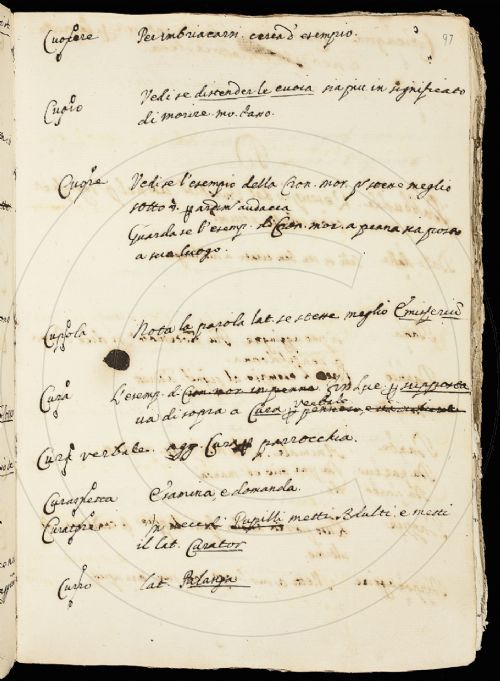 97
Cuocere Per imbriacarsi. cercad' esempio.
Cuoio Vedi se distender le cuoia sia piu in significato
di morire. mo. basso.
Cuore Vedi se l'esempio della Cron. mor. stesse meglio
sotto
Guarda se l'esemp. di Cron. mor. a penna sia posto
a suo luogo.
Cupola Nota la parola lat. se stesse meglio
Cura L'esemp. d. Cron. mor. in penna
va di sopra a Cura p pensiero,
verbale
Cura verbale. agg. Cura p parrocchia.
Esamina e domanda.
Curatore In vece di Pupilli metti Adulti e metti
il lat. Curator
Curro lat. Palanga